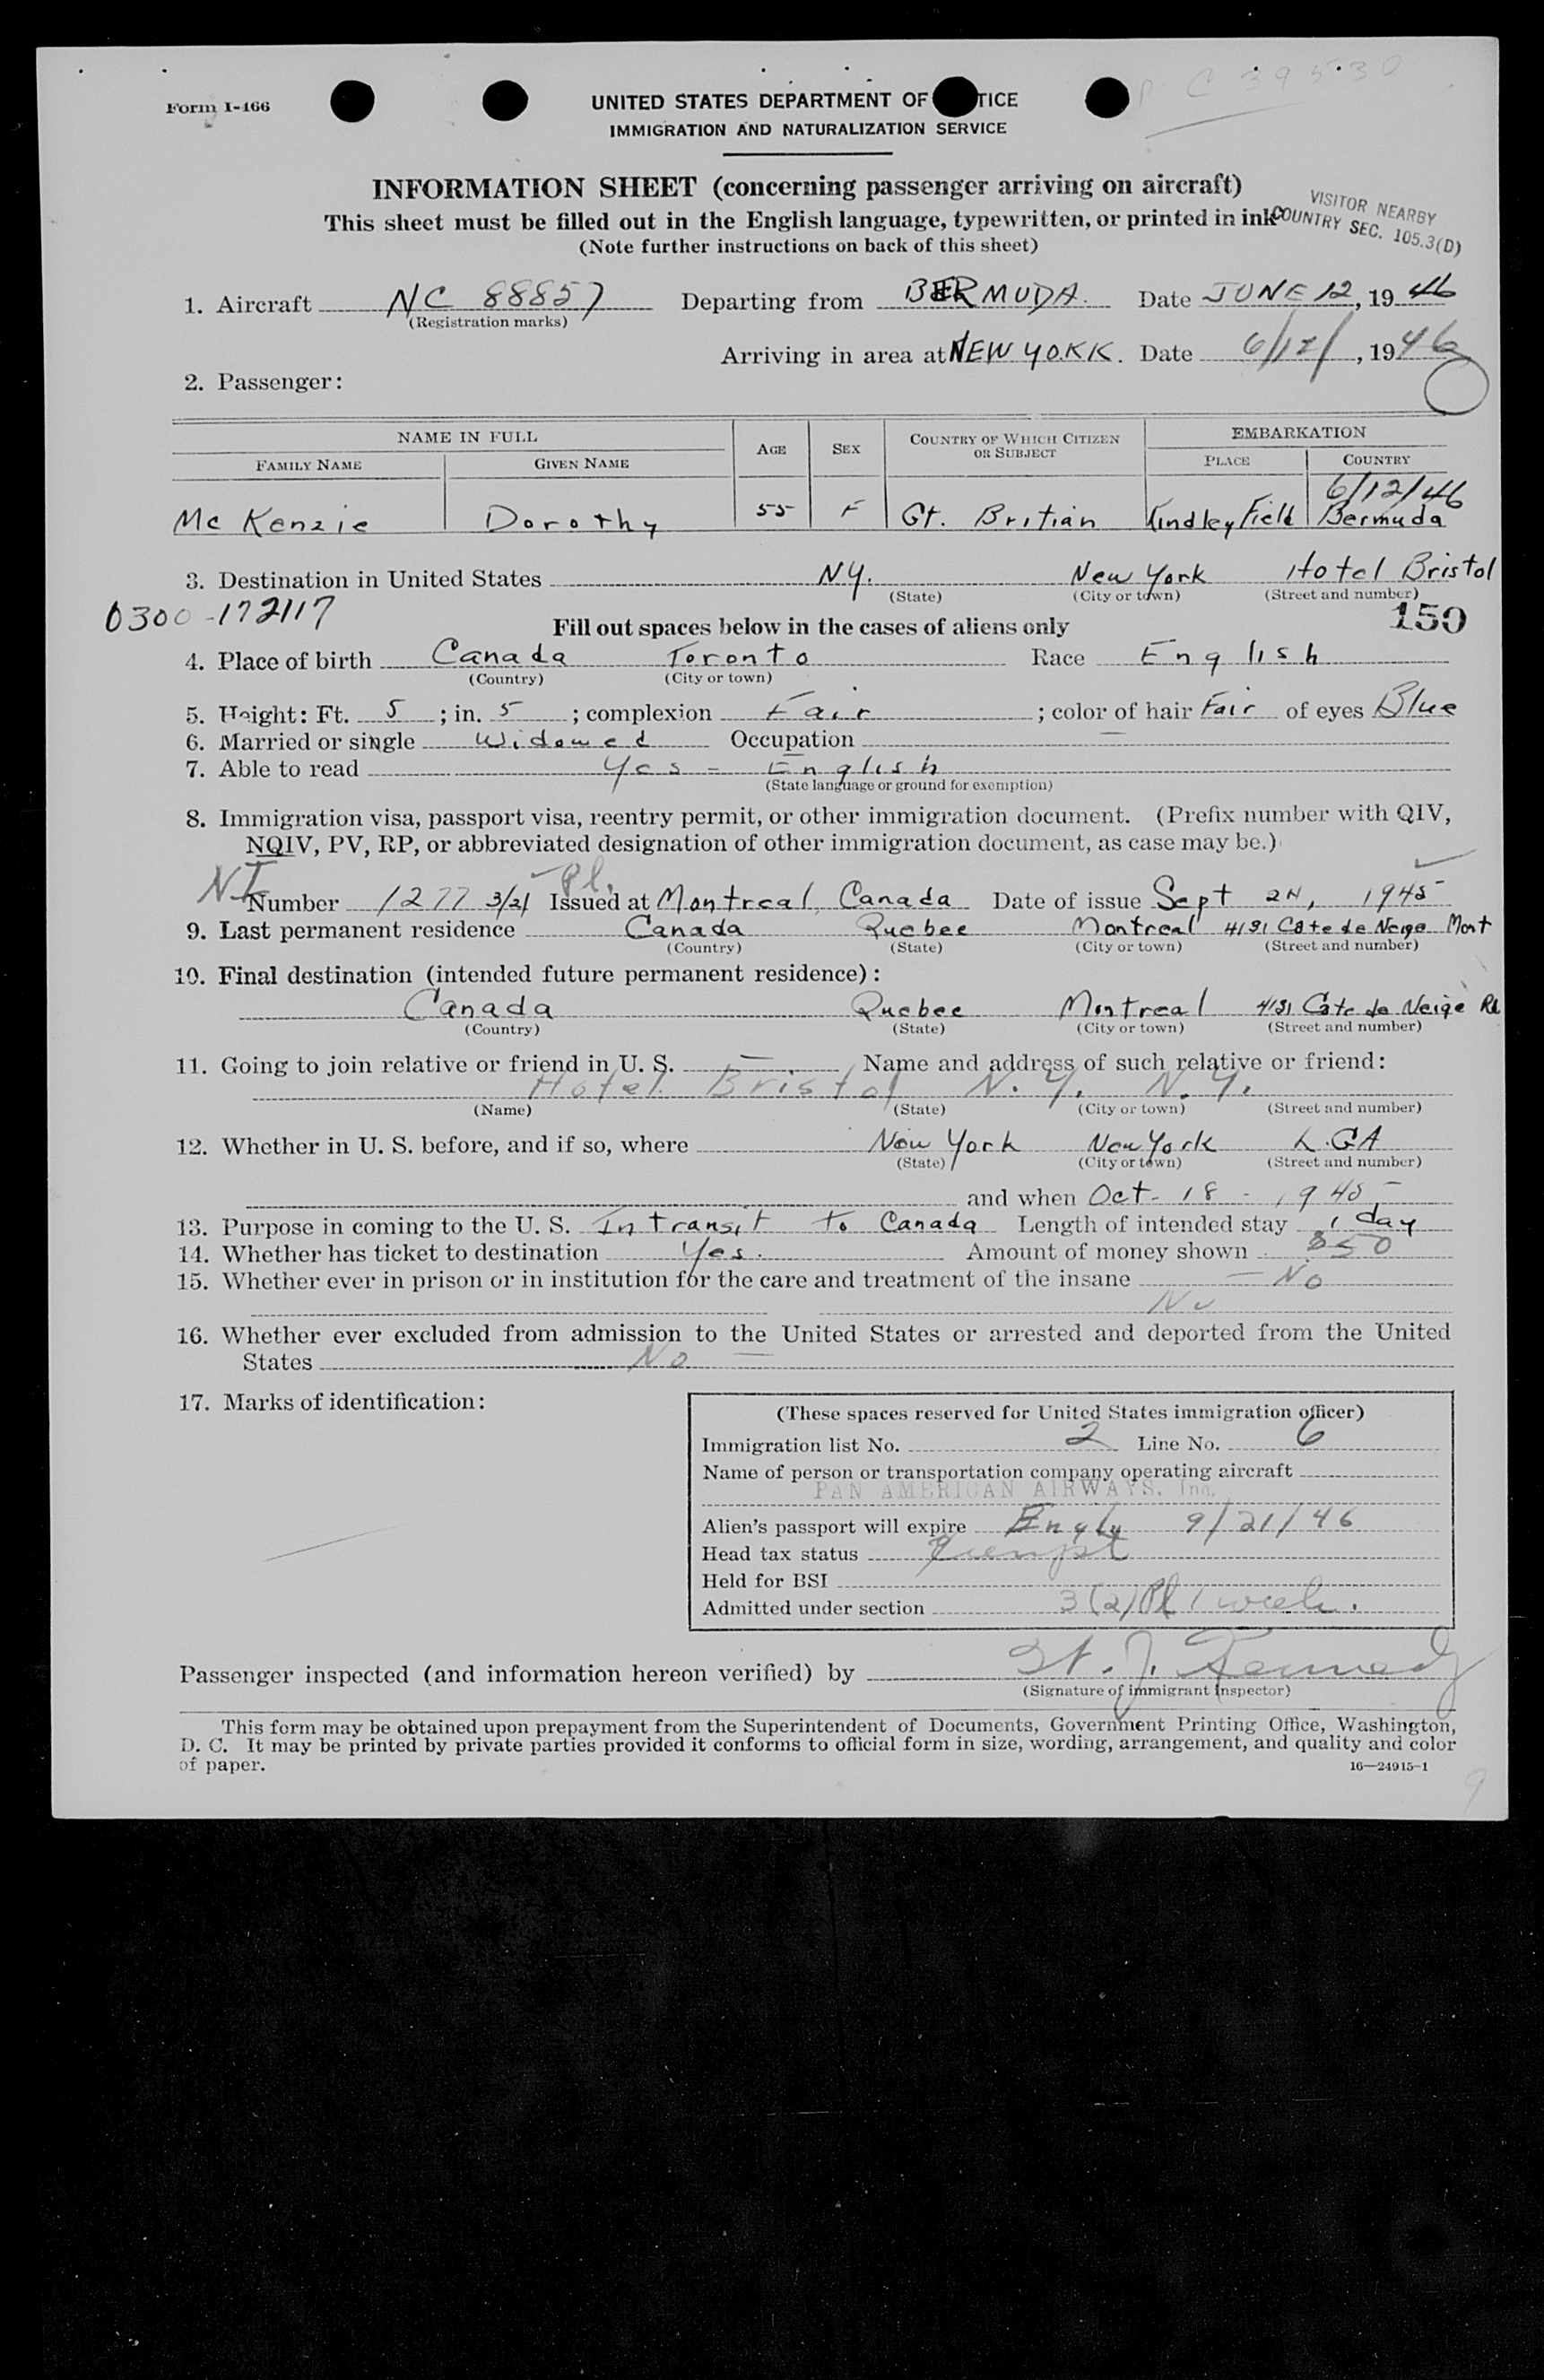 Form I-466
C 39530
UNITED STATES DEPARTMENT OF TICE
IMMIGRATION AND NATURALIZATION SERVICE
INFORMATION SHEET (concerning passenger arriving on aircraft)
This sheet must be filled out in the English language, typewritten, or printed in ink
VISITOR NEARBY
COUNTRY SEC. 105.3(D)
(Note further instructions on back of this sheet)
1. Aircraft NC 88857 Departing from BERMUDA. Date JUNE 12, 19 46
(Registration marks)
Arriving in area at NEW YORK. Date 6/12/, 19 46
2. Passenger:
NAME IN FULL AGE SEX COUNTRY OF WHICH CITIZEN OR SUBJECT EMBARKATION
FAMILY NAME GIVEN NAME PLACE COUNTRY
6/12/46
Mc Kenzie Dorothy 55 F Gt. Britian Kindley Field Bermuda
3. Destination in United States NY. New York Hotel Bristol
(State) (City or town) (Street and number)
0300-172117
150
Fill out spaces below in the cases of aliens only
4. Place of birth Canada Toronto Race English
(Country) (City or town)
5. Height: Ft. 5; in. 5; complexion Fair; color of hair Fair of eyes Blue
6. Married or single Widowed Occupation —
7. Able to read Yes - English
(State language or ground for exemption)
8. Immigration visa, passport visa, reentry permit, or other immigration document. (Prefix number with QIV,
NQIV, PV, RP, or abbreviated designation of other immigration document, as case may be.)
NI Pl.
Number 1277 3/21 Issued at Montreal, Canada Date of issue Sept 2N, 1945
9. Last permanent residence Canada Quebec Montreal 4191 Cote de Neige Mont
(Country) (State) (City or town) (Street and number)
10. Final destination (intended future permanent residence):
Canada Quebec Montreal 4191 Cote de Neige Rd
(Country) (State) (City or town) (Street and number)
11. Going to join relative or friend in U. S. — Name and address of such relative or friend:
Hotel Bristol N.Y. N.Y.
(Name) (State) (City or town) (Street and number)
12. Whether in U. S. before, and if so, where New York New York L.GA
(State) (City or town) (Street and number)
and when Oct - 18 - 1945
13. Purpose in coming to the U. S. In transit to Canada Length of intended stay 1 day
14. Whether has ticket to destination Yes. Amount of money shown $50
15. Whether ever in prison or in institution for the care and treatment of the insane — No
No
16. Whether ever excluded from admission to the United States or arrested and deported from the United
States No —
17. Marks of identification:
(These spaces reserved for United States immigration officer)
Immigration list No. 2 Line No. 6
Name of person or transportation company operating aircraft
PAN AMERICAN AIRWAYS, Inc.
Alien's passport will expire 9/21/46
Head tax status Exempt
Held for BSI
Admitted under section 3(2) Pl 1 week.
Passenger inspected (and information hereon verified) by J. Kennedy
(Signature of immigrant inspector)
This form may be obtained upon prepayment from the Superintendent of Documents, Government Printing Office, Washington,
D. C. It may be printed by private parties provided it conforms to official form in size, wording, arrangement, and quality and color
of paper.
16—24915-1
9